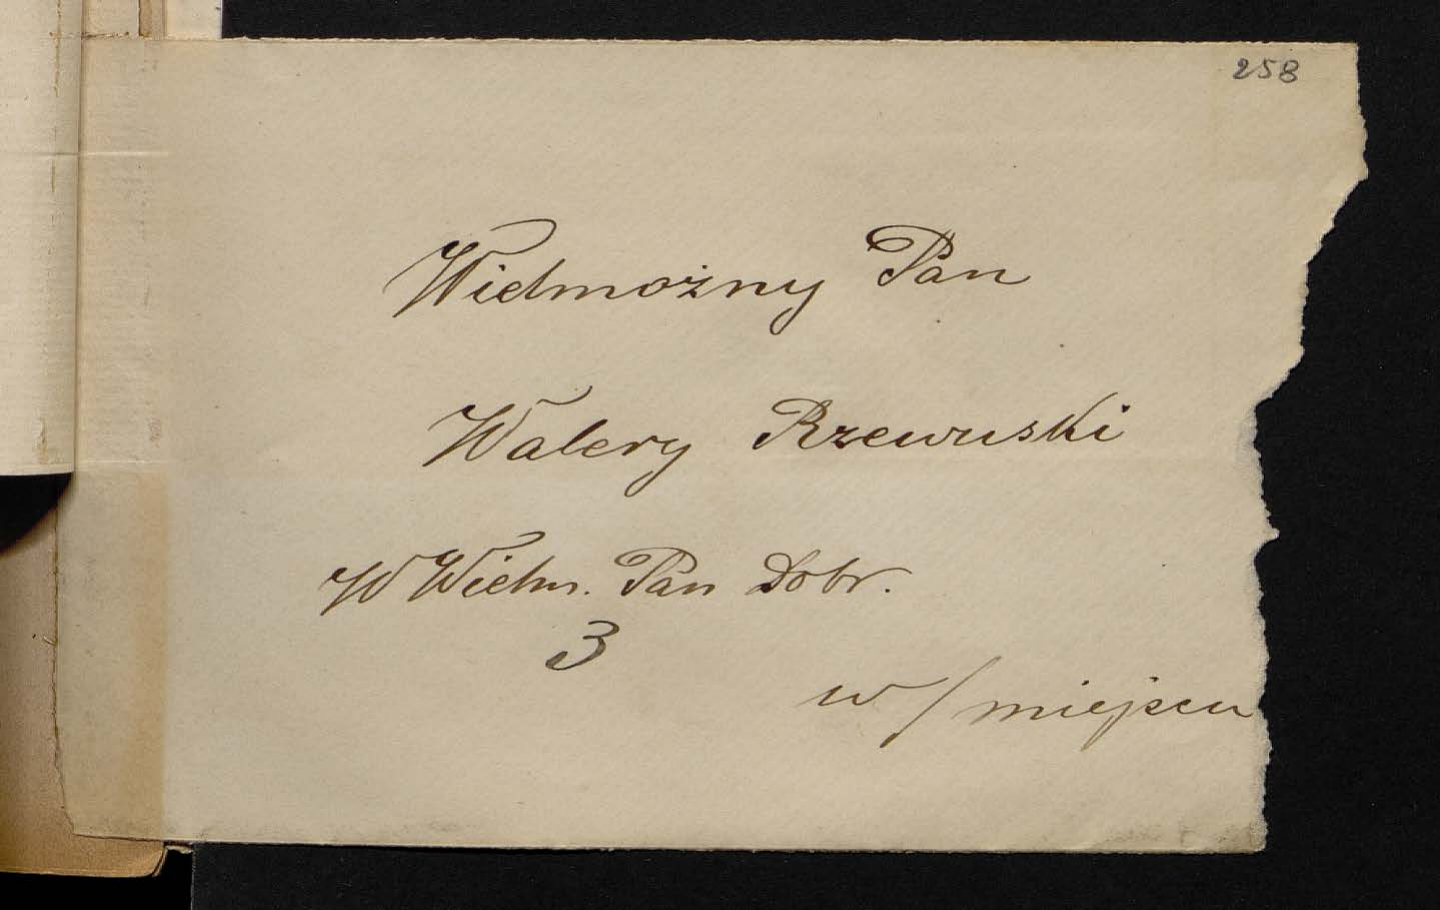 258
Wielmożny Pan
Walery Rzewuski
W Wielm. Pan Dobr.
3
w/miejscu